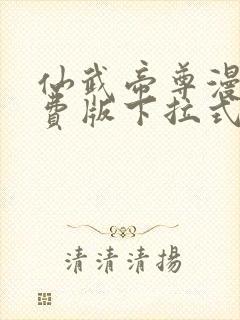 仙武帝尊漫
費版下拉式
清清清揚